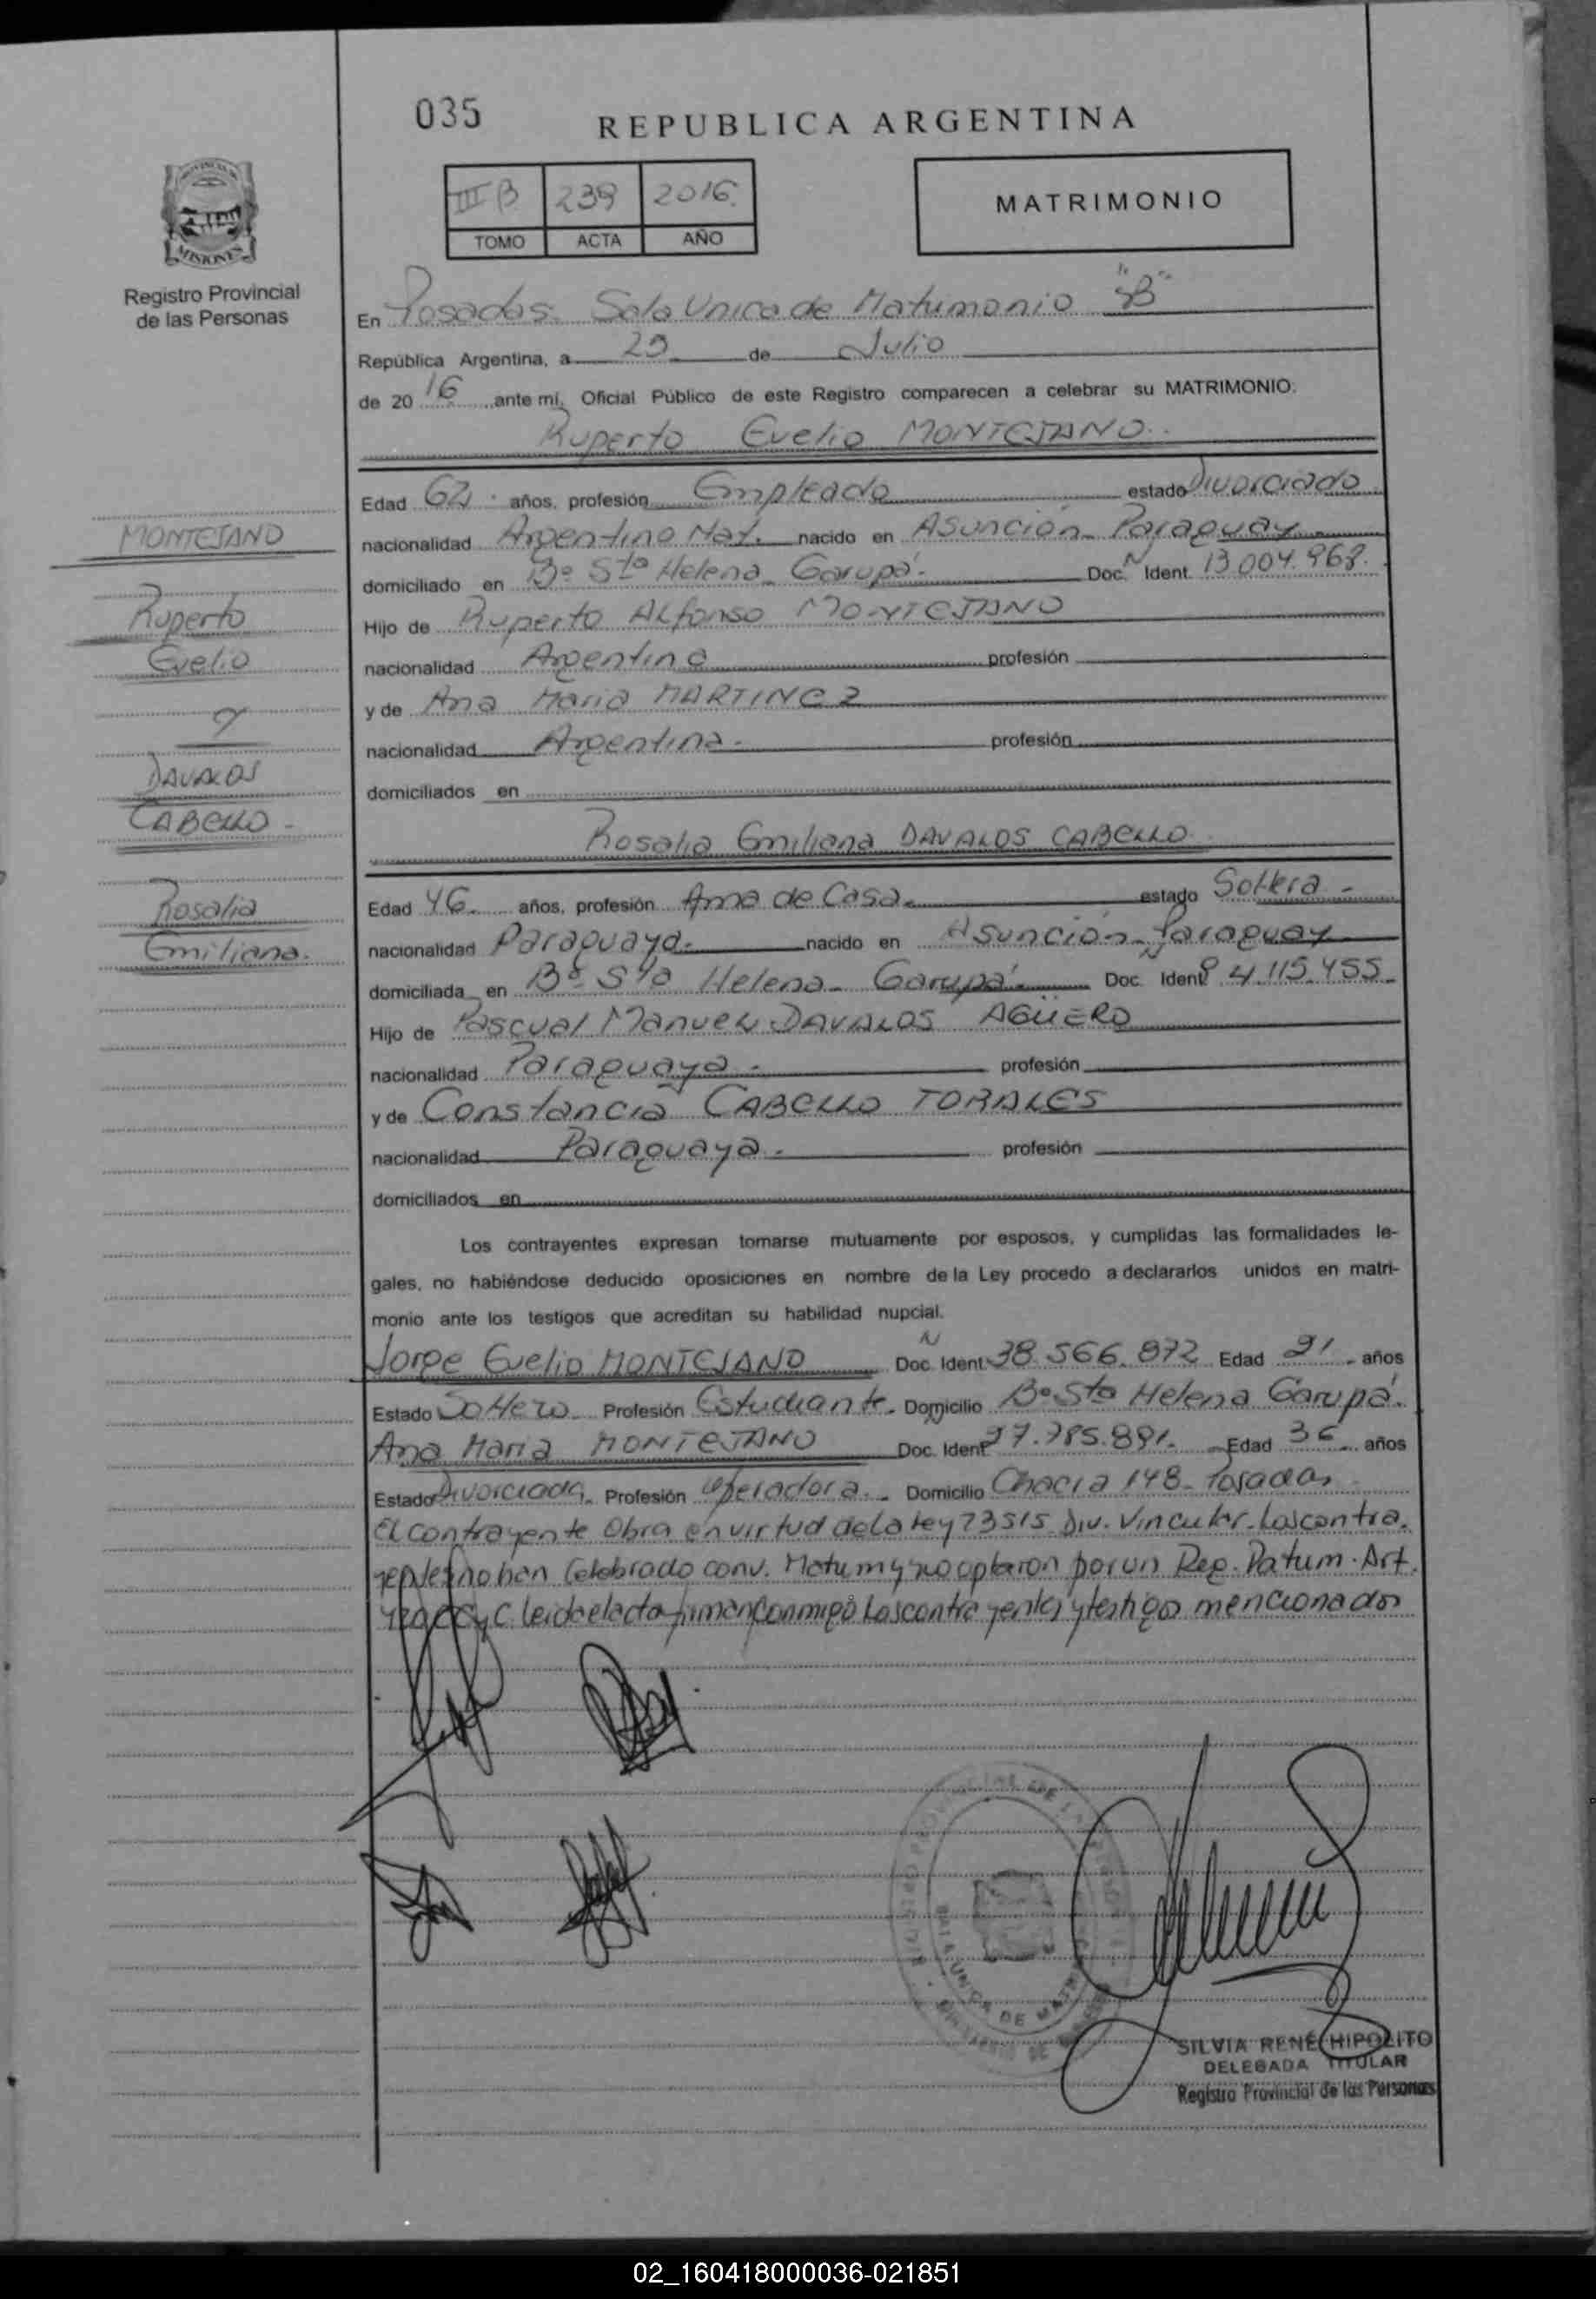 035
REPUBLICA ARGENTINA
III B 239 2016
TOMO ACTA AÑO
MATRIMONIO
MISIONES
Registro Provincial
de las Personas
En Posadas Sala Unica de Matrimonio "B"
República Argentina, a 29 de Julio
de 2016 ante mí, Oficial Público de este Registro comparecen a celebrar su MATRIMONIO.
Ruperto Evelio MONTEJANO
Edad 62 años, profesión Empleado estado Divorciado
nacionalidad Argentino Nat. nacido en Asunción Paraguay
domiciliado en Bº Sta Helena Garupá Doc. Ident. N 13.004.968.
Hijo de Ruperto Alfonso MONTEJANO
nacionalidad Argentina profesión
y de Ana Maria MARTINEZ
nacionalidad Argentina profesión
domiciliados en
Rosalia Emiliana DAVALOS CABELLO
Edad 46 años, profesión Ama de Casa estado Soltera
nacionalidad Paraguaya nacido en Asunción Paraguay
domiciliada en Bº Sta Helena Garupá Doc. Ident 4.115.455
Hijo de Pascual Manuel DAVALOS AGÜERO
nacionalidad Paraguaya profesión
y de Constancia CABELLO TORALES
nacionalidad Paraguaya profesión
domiciliados en
MONTEJANO
Ruperto
Evelio
y
DAVALOS
CABELLO
Rosalia
Emiliana
Los contrayentes expresan tomarse mutuamente por esposos, y cumplidas las formalidades le-
gales, no habiéndose deducido oposiciones en nombre de la Ley procedo a declararlos unidos en matri-
monio ante los testigos que acreditan su habilidad nupcial.
Jorge Evelio MONTEJANO Doc. Ident. N 38.566.872 Edad 21 años
Estado Soltero Profesión Estudiante Domicilio Bº Sta Helena Garupá
Ana Maria MONTEJANO Doc. Ident Edad 36 años
Estado Divorciada Profesión Operadora Domicilio Chacra 148 Posadas
El contrayente Obra en virtud de la Ley 23515 Div. Vincular. Los contra.
yentes no han Celebrado conv. Matrim y no optaron por un Reg. Patrim. Art.
CCyC. Leida el acta firman conmigo Los contrayentes y testigos mencionados
SILVIA RENE HIPOLITO
DELEGADA TITULAR
Registro Provincial de las Personas
02_160418000036-021851